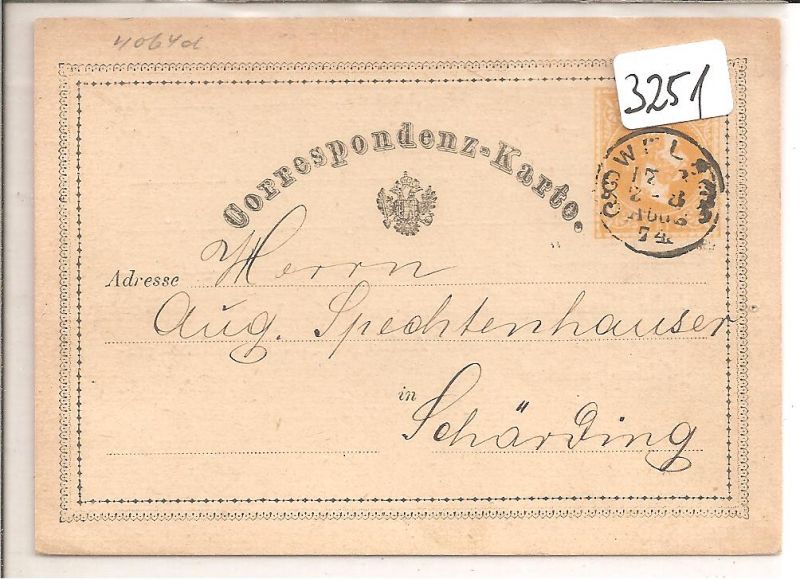 4064d
3251
Correspondenz-Karte.
WEL
17 8
7-8
74
Adresse
Herrn
Aug. Spechtenhauser
in
Schärding